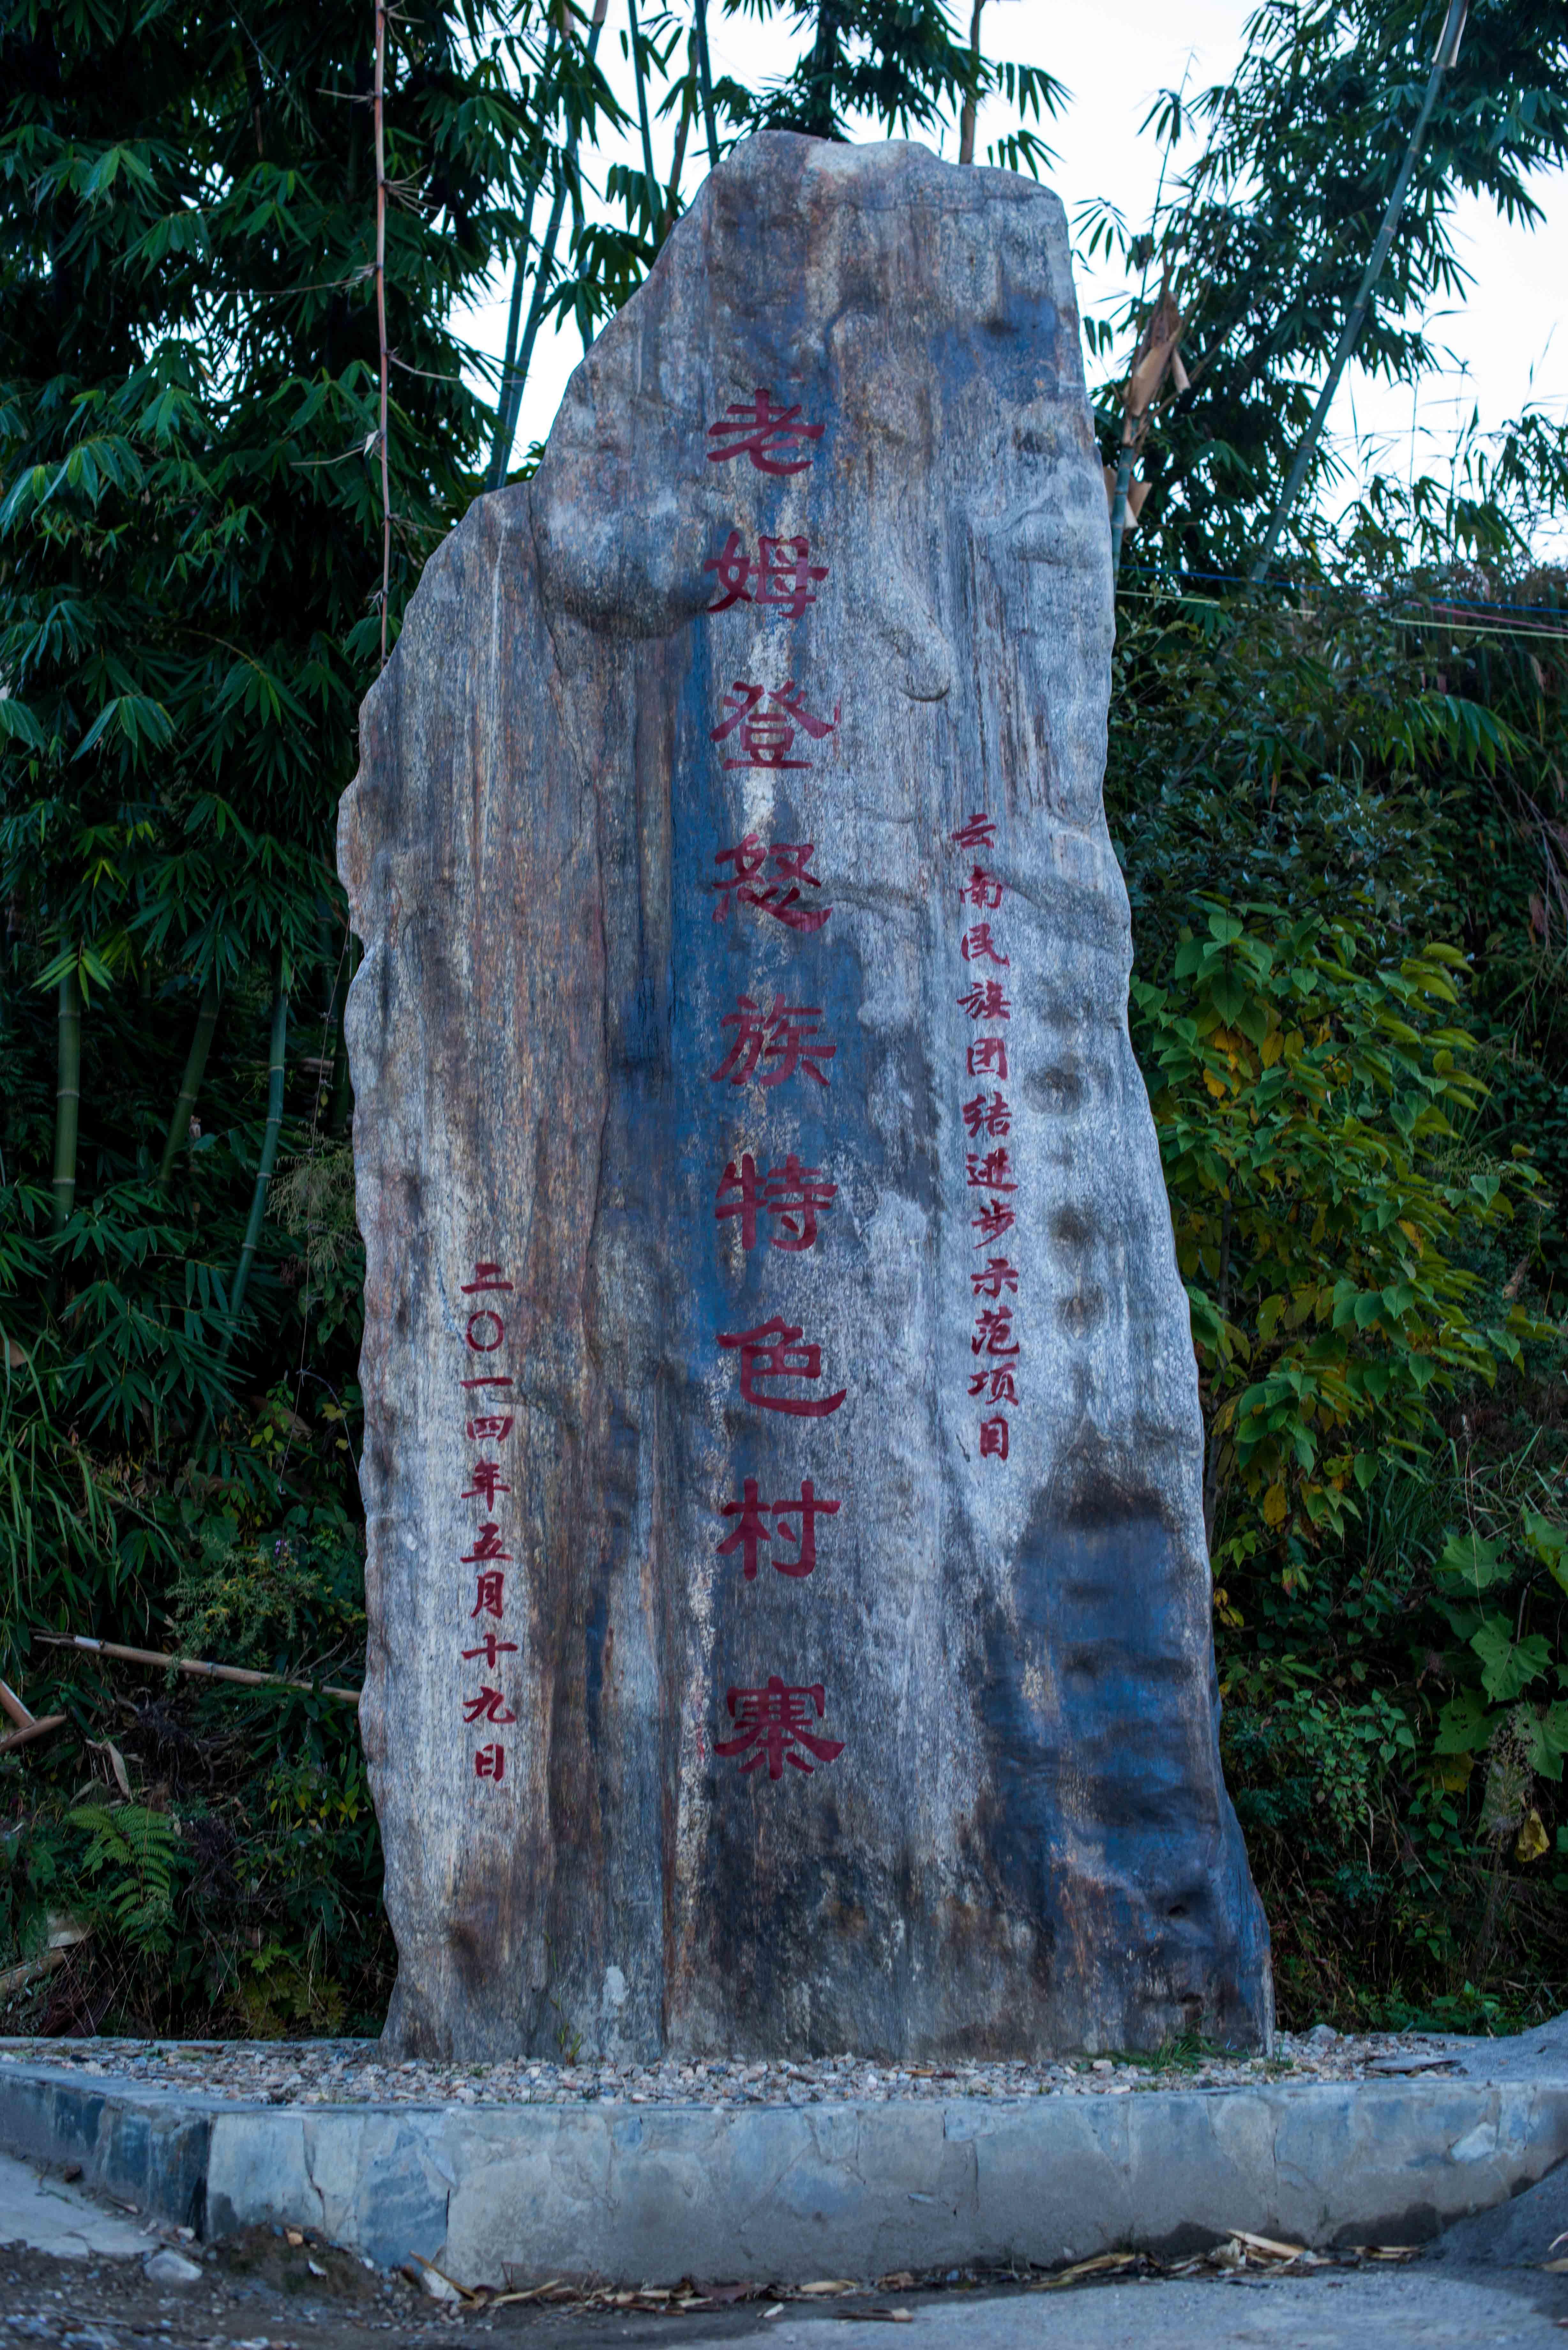 云南民族团结进步示范项目
老姆登怒族特色村寨
二〇一四年五月十九日